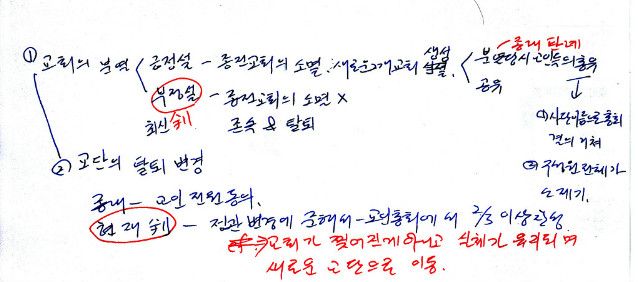 종래 판례
① 교회의 분열 < 긍정설 - 종전교회의 소멸. 새로운 2개교회 생성 < 분열당시 교인들의 총유
공유
부정설 - 종전교회의 소멸 X
최신 判 존속 & 탈퇴
① 사단이름으로 총회결의 거쳐
② 구성원 전체가 소제기.
② 교단의 탈퇴 변경
종래 - 교인 전원 동의.
현재 判 - 정관변경에 준해서 - 교인총회에서 2/3 이상 찬성
교회가 찢어진게 아니고 실체가 유지되며
새로운 교단으로 이동.